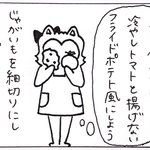 冷やしトマトと揚げない
フライドポテト風にしよう
じゃがいもを細切りにし